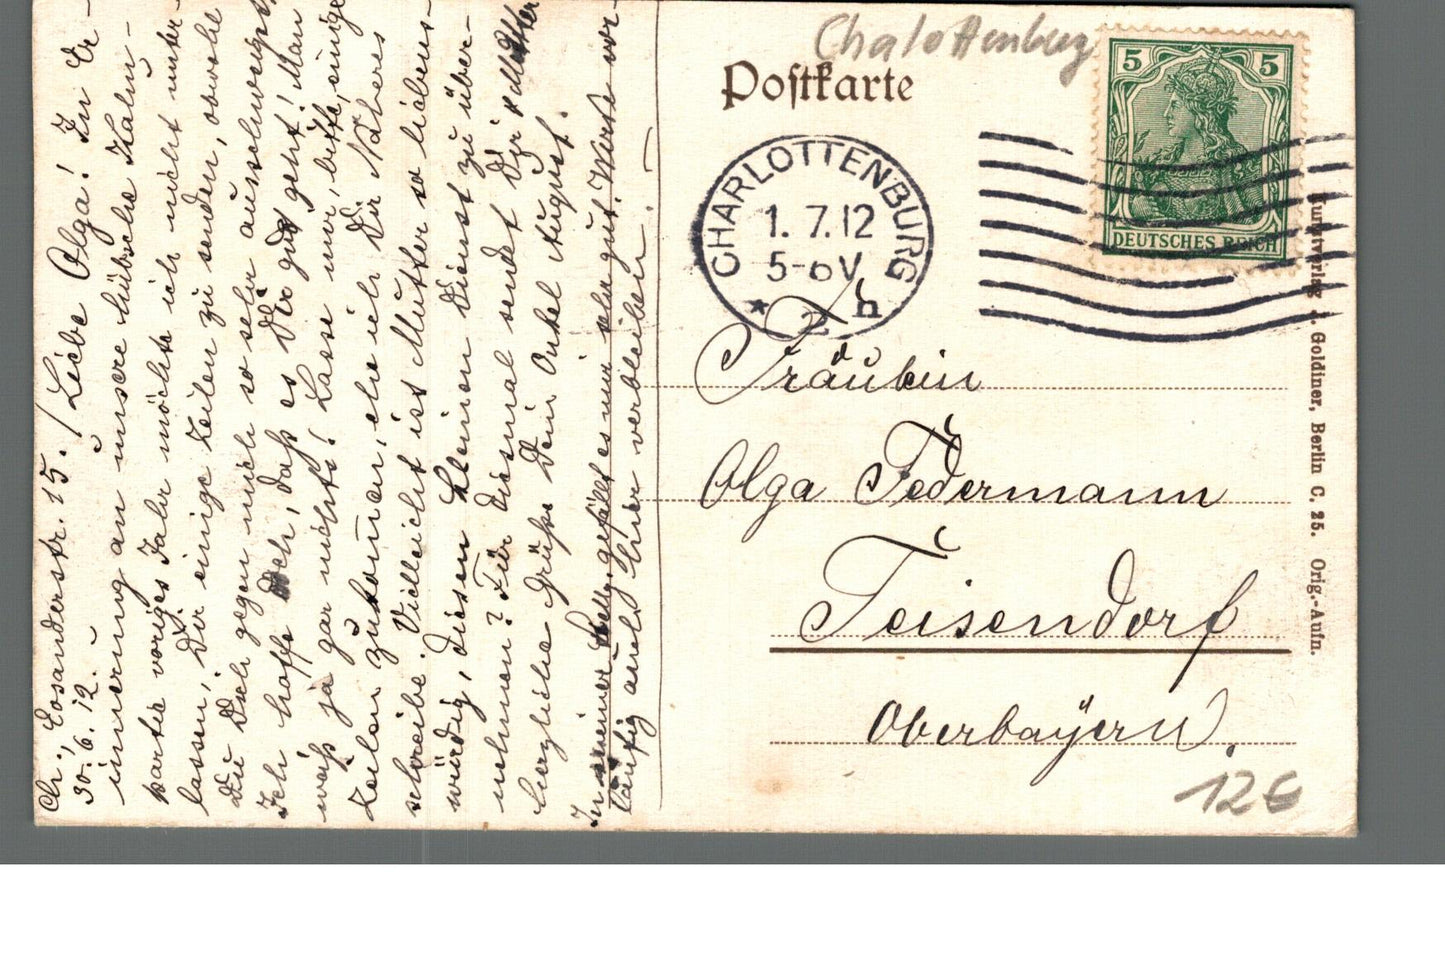 Chalottenburg
Postkarte
5 5
DEUTSCHES REICH
CHARLOTTENBURG
1. 7.12
5-6V
* 2 h
Fräulein
Olga Federmann
Teisendorf
Oberbayern.
12€
Kunstverlag J. Goldiner, Berlin C, 25. Orig.-Aufn.
Ch., Eosanderstr. 15. / Liebe Olga! In Er-
30.6.12.
innerung an unsere hübsche Kahn-
partie voriges Jahr möchte ich nicht unter-
lassen, Dir einige Zeilen zu senden, obwohl
Du Dich gegen mich so sehr ausschweigst.
Ich hoffe doch, daß es Dir gut geht! Man
weiß ja gar nichts! Lasse mir, bitte, einige
Zeilen zukommen, ehe ich Dir Näheres
schreibe. Vielleicht ist Mutter so liebens-
würdig, diesen kleinen Dienst zu über-
nehmen? Für diesmal sendet Dir
herzliche Grüße Dein Onkel August.
In meiner gefällt es mir sehr gut. Werde vor-
läufig auch hier verbleiben.